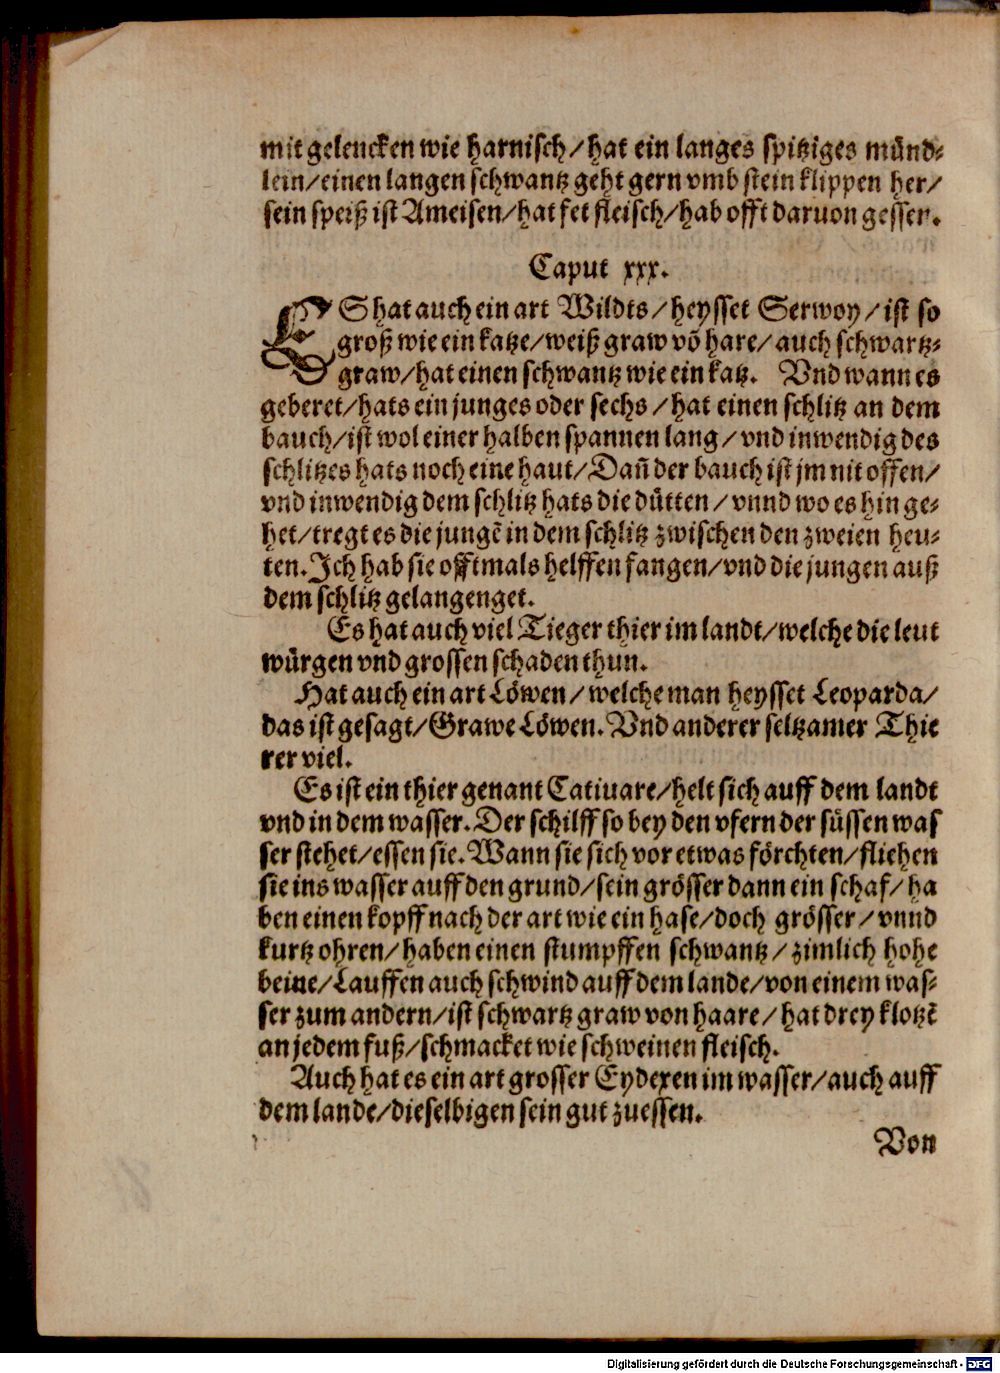 mit gelencken wie harnisch/hat ein langes spitziges münd-
lein/einen langen schwantz geht gern vmb stein klippen her/
sein speiß ist Ameisen/hat fet fleisch/hab offt daruon gessen.
Caput xxx.
ES hat auch ein art Wildts/heysset Serwoy/ist so
groß wie ein katze/weiß graw võ hare/auch schwartz-
graw/hat einen schwantz wie ein katz. Vnd wann es
geberet/hats ein junges oder sechs/hat einen schlitz an dem
bauch/ist wol einer halben spannen lang/vnd inwendig des
schlitzes hats noch eine haut/Dañ der bauch ist jm nit offen/
vnd inwendig dem schlitz hats die dütten/vnnd wo es hin ge-
het/tregt es die jungẽ in dem schlitz zwischen den zweien heu-
ten. Ich hab sie offtmals helffen fangen/vnd die jungen auß
dem schlitz gelangenget.
Es hat auch viel Tieger thier im landt/welche die leut
würgen vnd grossen schaden thun.
Hat auch ein art Löwen/welche man heysset Leoparda/
das ist gesagt/Grawe Löwen. Vnd anderer seltzamer Thie
rer viel.
Es ist ein thier genant Catiuare/helt sich auff dem landt
vnd in dem wasser. Der schilff so bey den vfern der süssen was
ser stehet/essen sie. Wann sie sich vor etwas förchten/fliehen
sie ins wasser auff den grund/sein grösser dann ein schaf/ha
ben einen kopff nach der art wie ein hase/doch grösser/vnnd
kurtz ohren/haben einen stumpffen schwantz/zimlich hohe
beine/Lauffen auch schwind auff dem lande/von einem was-
ser zum andern/ist schwartz graw von haare/hat drey klotzẽ
an jedem fuß/schmacket wie schweinen fleisch.
Auch hat es ein art grosser Eydexen im wasser/auch auff
dem lande/dieselbigen sein gut zuessen.
Von
Digitalisierung gefördert durch die Deutsche Forschungsgemeinschaft - DFG